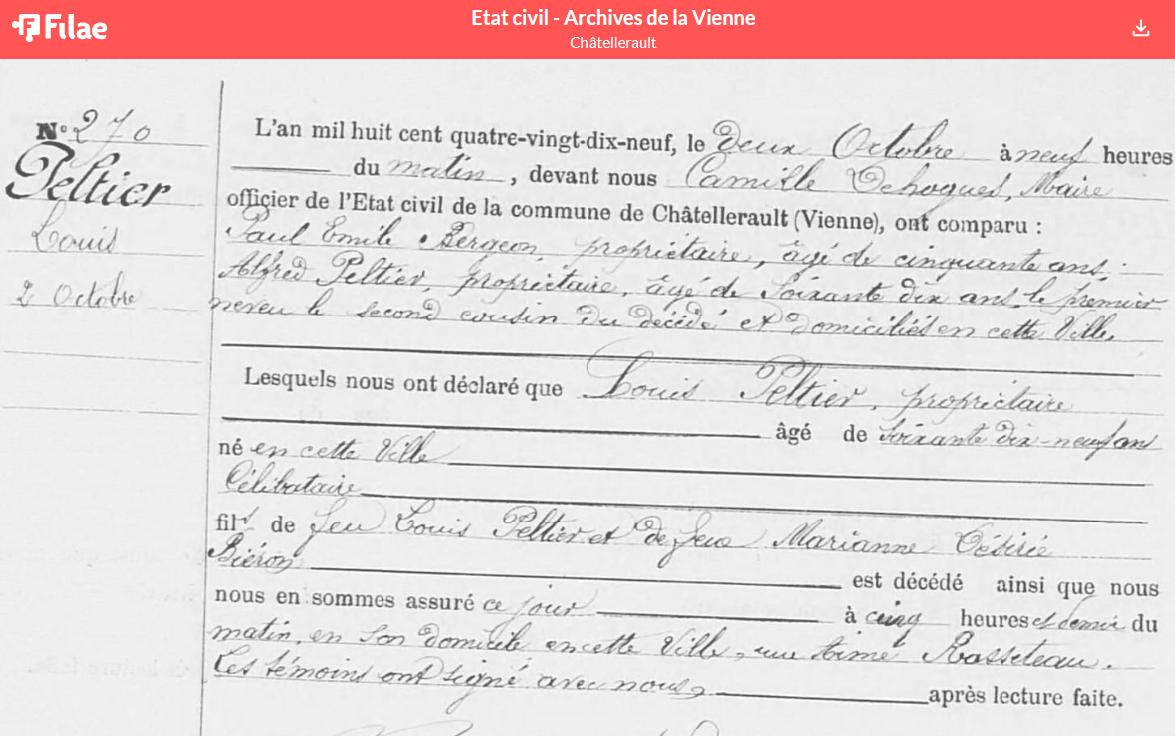 Filae
Etat civil - Archives de la Vienne
Châtellerault
N° 270
Peltier
Louis
2 Octobre
L'an mil huit cent quatre-vingt-dix-neuf, le Deux Octobre à neuf heures
du matin, devant nous Camille Dehogues, Maire
officier de l'Etat civil de la commune de Châtellerault (Vienne), ont comparu :
Paul Emile Bergeon, propriétaire, âgé de cinquante ans :
Alfred Peltier, propriétaire, âgé de Soixante dix ans, le premier
neveu le second cousin du décédé et domiciliés en cette Ville.
Lesquels nous ont déclaré que Louis Peltier, propriétaire
âgé de Soixante dix-neuf ans
né en cette Ville
Célibataire
fils de feu Louis Peltier et de feue Marianne Désirée
Biéron est décédé ainsi que nous
nous en sommes assuré ce jour à cinq heures et demie du
matin, en son domicile en cette Ville, rue Aimé Rasseteau.
Les témoins ont signé avec nous, après lecture faite.